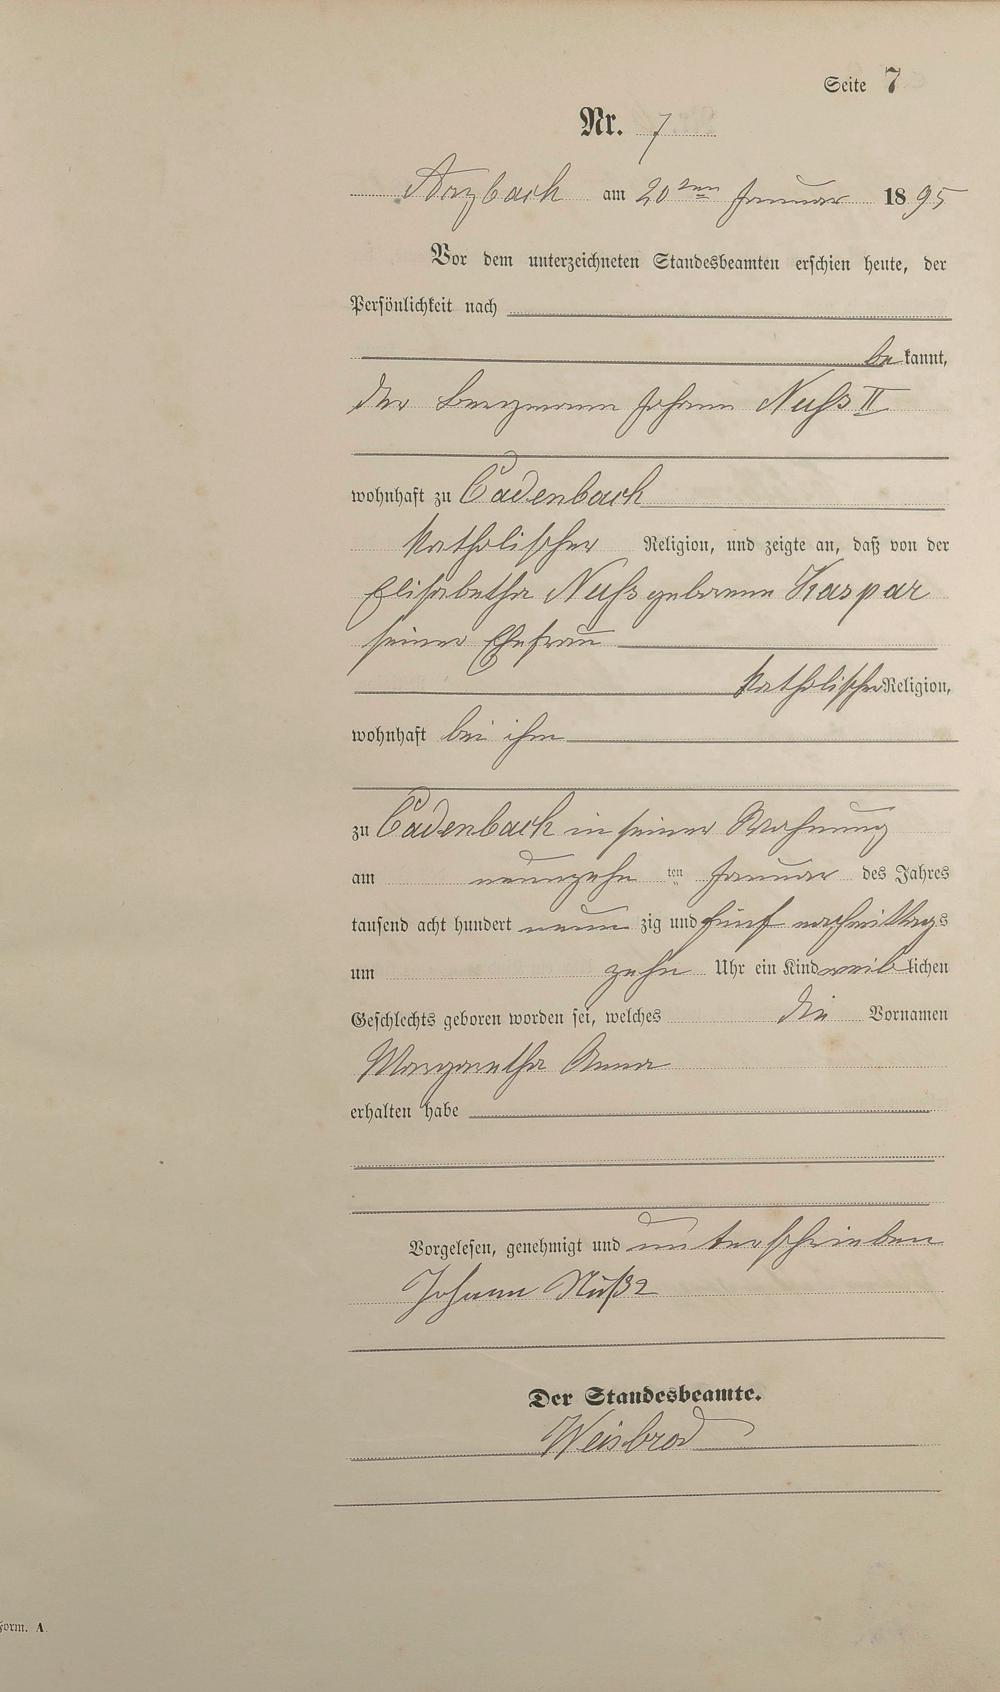 Seite 7
Nr. 7
Arzbach am 20ten Januar 1895
Vor dem unterzeichneten Standesbeamten erschien heute, der
Persönlichkeit nach
bekannt,
der Bergmann Johann Nuſs II
wohnhaft zu Cadenbach
katholischer Religion, und zeigte an, daß von der
Elisabetha Nuſs geborene Kaspar
seiner Ehefrau
katholischer Religion,
wohnhaft bei ihm
zu Cadenbach in seiner Wohnung
am neunzehn ten Januar des Jahres
tausend acht hundert neun zig und fünf nachmittags
um zehn Uhr ein Kind weiblichen
Geschlechts geboren worden sei, welches die Vornamen
Margaretha Anna
erhalten habe
Vorgelesen, genehmigt und unterschrieben
Johann Nuß 2
Der Standesbeamte.
Weisbrod
Form. A.